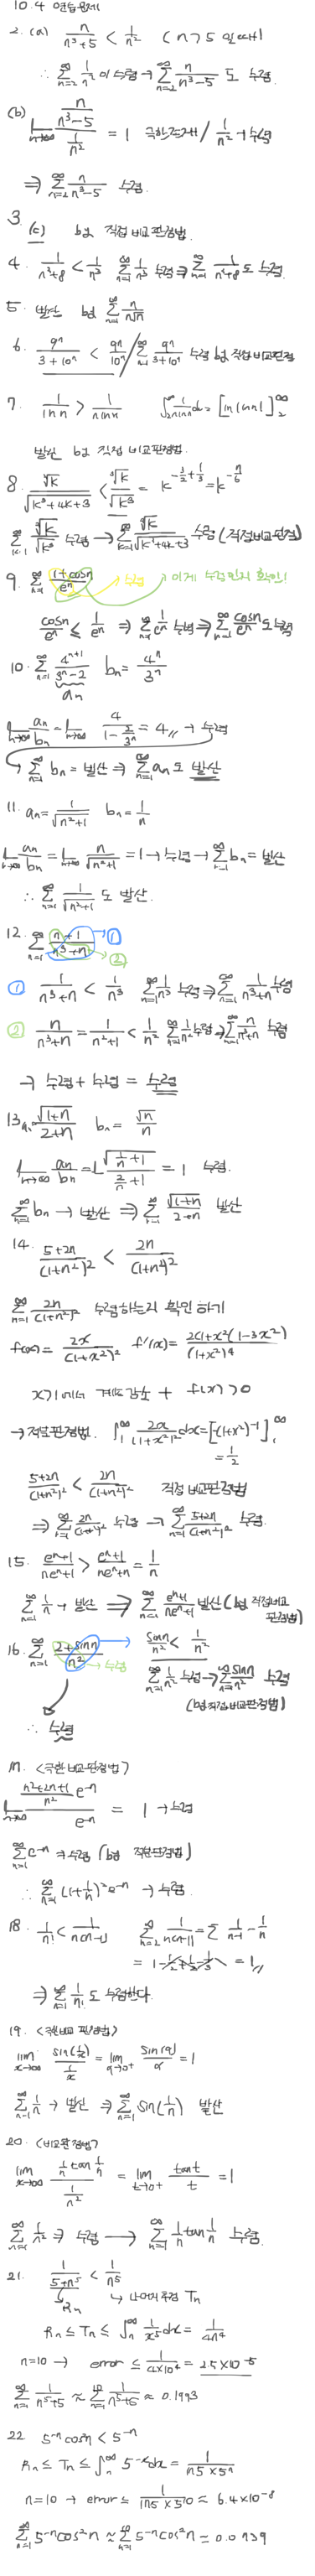 10.4 연습문제
2. (a) n/(n³+5) < 1/n² (n>5 일때!)
∴ ∑_{n=2}^∞ 1/n² 이 수렴 → ∑_{n=2}^∞ n/(n³-5) 도 수렴.
(b) lim_{n→∞} (n/(n³-5))/(1/n²) = 1 극한존재 / 1/n² → 수렴
⇒ ∑_{n=2}^∞ n/(n³-5) 수렴.
3. (c) by 직접 비교판정법.
4. 1/(n³+8) < 1/n³ ∑_{n=1}^∞ 1/n³ 수렴 ⇒ ∑_{n=1}^∞ 1/(n³+8) 도 수렴.
5. 발산 by ∑_{n=1}^∞ n/(n√n)
6. 9ⁿ/(3+10ⁿ) < 9ⁿ/10ⁿ / ∑_{n=1}^∞ 9ⁿ/(3+10ⁿ) 수렴 by 직접비교판정
7. 1/(ln n) > 1/(n ln n) ∫_2^∞ 1/(n ln n) dn = [ln(ln n)]_2^∞
발산 by 직접 비교판정법.
8. ∛k/√(k³+4k+3) < ∛k/√k³ = k^{-3/2+1/3} = k^{-7/6}
∑_{k=1}^∞ ∛k/√k³ 수렴 → ∑_{k=1}^∞ ∛k/√(k³+4k+3) 수렴 (직접비교판정)
9. ∑_{n=1}^∞ (1+cosn)/eⁿ → 수렴 이게 수렴인지 확인!
cosn/eⁿ ≤ 1/eⁿ ⇒ ∑_{n=1}^∞ 1/eⁿ 수렴 ⇒ ∑_{n=1}^∞ cosn/eⁿ 도 수렴
10. ∑_{n=1}^∞ 4^{n+1}/(3ⁿ-2) bn = 4ⁿ/3ⁿ
an
lim_{n→∞} an/bn = lim_{n→∞} 4/(1-2/3ⁿ) = 4 // → 수렴
→ ∑_{n=1}^∞ bn = 발산 ⇒ ∑_{n=1}^∞ an 도 발산
11. an = 1/√(n²+1) bn = 1/n
lim_{n→∞} an/bn = lim_{n→∞} n/√(n²+1) = 1 → 수렴 → ∑_{n=1}^∞ bn = 발산
∴ ∑_{n=1}^∞ 1/√(n²+1) 도 발산.
12. ∑_{n=1}^∞ (n+1)/(n³+n) ① ②
① 1/(n³+n) < 1/n³ ∑_{n=1}^∞ 1/n³ 수렴 ⇒ ∑_{n=1}^∞ 1/(n³+n) 수렴
② n/(n³+n) = 1/(n²+1) < 1/n² ∑_{n=1}^∞ 1/n² 수렴 ⇒ ∑_{n=1}^∞ n/(n³+n) 수렴
→ 수렴 + 수렴 = 수렴
13. an = √(1+n)/(2+n) bn = √n/n
lim_{n→∞} an/bn = lim √(1/n+1)/(2/n+1) = 1 수렴.
∑_{n=1}^∞ bn → 발산 ⇒ ∑_{n=1}^∞ √(1+n)/(2+n) 발산
14. (5+2n)/(1+n²)² < 2n/(1+n²)²
∑_{n=1}^∞ 2n/(1+n²)² 수렴하는지 확인 하기
f(x) = 2x/(1+x²)² f'(x) = 2(1+x²)(1-3x²)/(1+x²)⁴
x>1에서 계속 감소 + f(x)>0
→ 적분판정법. ∫_1^∞ 2x/(1+x²)² dx = [-(1+x²)⁻¹]_1^∞
= 1/2
(5+2n)/(1+n²)² < 2n/(1+n²)² 직접 비교판정법
⇒ ∑_{n=1}^∞ 2n/(1+n²)² 수렴 → ∑_{n=1}^∞ (5+2n)/(1+n²)² 수렴.
15. (eⁿ+1)/(neⁿ+1) > (eⁿ+1)/(neⁿ+n) = 1/n
∑_{n=1}^∞ 1/n → 발산 ⇒ ∑_{n=1}^∞ (eⁿ+1)/(neⁿ+1) 발산 (by 직접비교판정법)
16. ∑_{n=1}^∞ (2+sinn)/n² → 수렴 sinn/n² < 1/n²
∑_{n=1}^∞ 1/n² 수렴 → ∑_{n=1}^∞ sinn/n² 수렴
(by 직접비교판정법)
∴ 수렴
17. <극한비교판정법>
lim_{n→∞} ((n²+2n+1)/n² e⁻ⁿ)/e⁻ⁿ = 1 → 수렴
∑_{n=1}^∞ e⁻ⁿ ⇒ 수렴 (by 적분판정법)
∴ ∑_{n=1}^∞ (1+1/n)² e⁻ⁿ → 수렴.
18. 1/n! < 1/(n(n-1)) ∑_{n=2}^∞ 1/(n(n-1)) = ∑ 1/(n-1) - 1/n
= 1-1/2+1/2-1/3 = 1 //
⇒ ∑_{n=1}^∞ 1/n! 도 수렴한다.
19. <극한비교 판정법>
lim_{x→∞} sin(1/x)/(1/x) = lim_{α→0+} sin(α)/α = 1
∑_{n=1}^∞ 1/n → 발산 ⇒ ∑_{n=1}^∞ sin(1/n) 발산
20. <비교판정법>
lim_{x→∞} (1/n tan 1/n)/(1/n²) = lim_{t→0+} tan t/t = 1
∑_{n=1}^∞ 1/n² ⇒ 수렴 → ∑_{n=1}^∞ 1/n tan 1/n 수렴.
21. 1/(5+n⁵) < 1/n⁵
Rn 나머지 추정 Tn
Rn ≤ Tn ≤ ∫_n^∞ 1/x⁵ dx = 1/(4n⁴)
n=10 → error ≤ 1/(4×10⁴) = 2.5×10⁻⁵
∑_{n=1}^∞ 1/(n⁵+5) ≈ ∑_{n=1}^{10} 1/(n⁵+5) ≈ 0.1993
22. 5⁻ⁿcos²n < 5⁻ⁿ
Rn ≤ Tn ≤ ∫_n^∞ 5⁻ˣ dx = 1/(ln5 × 5ⁿ)
n=10 → error ≤ 1/(ln5 × 5¹⁰) ≈ 6.4×10⁻⁸
∑_{n=1}^∞ 5⁻ⁿcos²n ≈ ∑_{n=1}^{10} 5⁻ⁿcos²n ≈ 0.0739